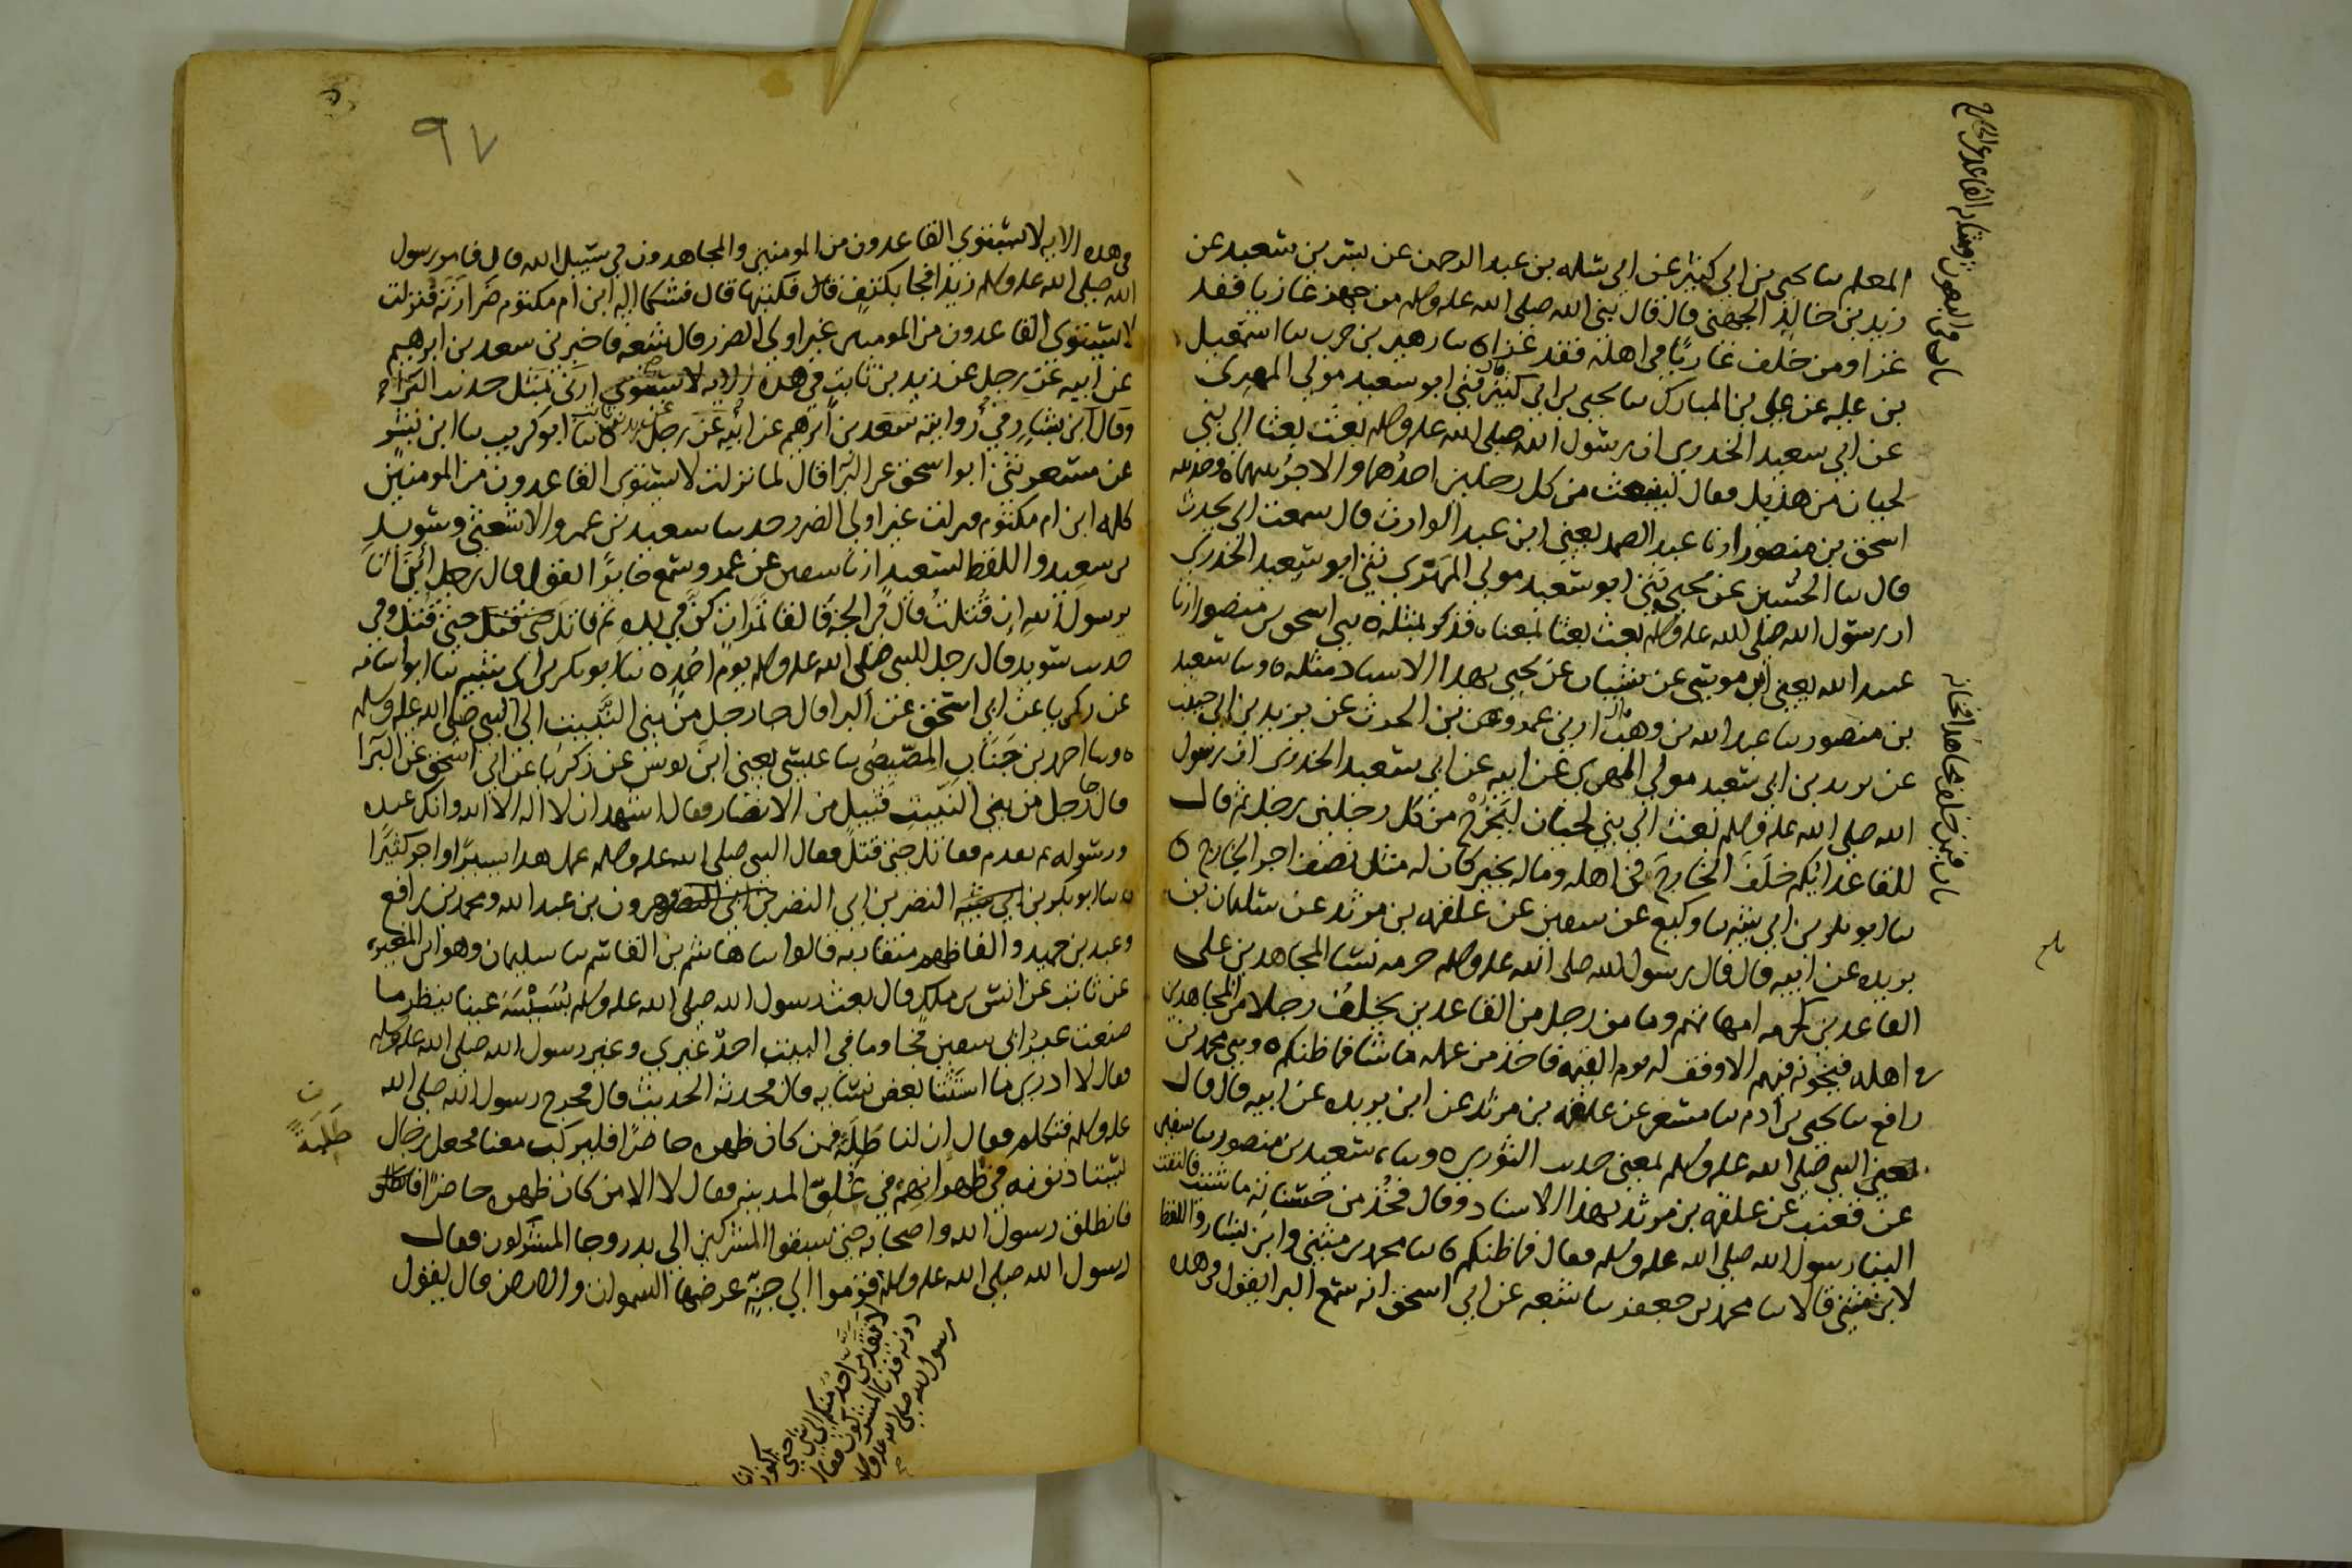 المعلم سا يحيى بن ابي كثير عن ابي سلمه بن عبد الرحمن عن بسر بن سعيد عن
زيد بن خالد الجهني قال قال نبي الله صلى الله عليه وسلم من جهز غازيا فقد
غزا ومن خلف غازيا في اهله فقد غزا ه سا زهير بن حرب سا اسمعيل
بن عليه عن علي بن المبارك سا يحيى بن ابي كثير قال ثني ابو سعيد مولى المهري
عن ابي سعيد الخدري ان رسول الله صلى الله عليه وسلم بعث بعثا الى بني
لحيان من هذيل فقال لينبعث من كل رجلين احدهما والاجر بينهما ه وحدثنيه
اسحق بن منصور انا عبد الصمد يعني ابن عبد الوارث قال سمعت ابي يحدث
قال سا الحسين عن يحيى ثني ابو سعيد مولى المهري ثني ابو سعيد الخدري
ان رسول الله صلى الله عليه وسلم بعث بعثا بمعناه فذكر بمثله ه ثني اسحق بن منصور انا
عبيد الله يعني ابن موسى عن شيبان عن يحيى بهذا الاسناد مثله ه وسا سعيد
بن منصور سا عبد الله بن وهب قال ارني عمرو بن الحرث عن يزيد بن ابي حبيب
عن يزيد بن ابي سعيد مولى المهري عن ابيه عن ابي سعيد الخدري ان رسول
الله صلى الله عليه وسلم بعث الى بني لحيان ليخرج من كل رجلين رجل ثم قال
للقاعد ايكم خلف الخارج في اهله وماله بخير كان له مثل نصف اجر الخارج ه
سا ابو بكر بن ابي شيبه سا وكيع عن سفين عن علقمه بن مرثد عن سليمان بن
بريده عن ابيه قال قال رسول الله صلى الله عليه وسلم حرمه نسا المجاهدين على
القاعدين كحرمه امهاتهم وما من رجل من القاعدين يخلف رجلا من المجاهدين
في اهله فيخونه فيهم الا وقف له يوم القيمه فاخذ من عمله ما شا فما ظنكم ه وثني محمد بن
رافع سا يحيى بن ادم سا مسعر عن علقمه بن مرثد عن ابن بريده عن ابيه قال قال
يعني النبي صلى الله عليه وسلم بمعنى حديث الثوري ه وسا سعيد بن منصور سا سفين
عن قعنب عن علقمه بن مرثد بهذا الاسناد وقال فخذ من حسناته ما شئت فالتفت
الينا رسول الله صلى الله عليه وسلم فقال فما ظنكم ه سا محمد بن مثنى وابن بشار واللفظ
لابن مثنى قالا سا محمد بن جعفر سا شعبه عن ابي اسحق انه سمع البرا يقول في هذه
٩٧
في هذه الايه لا يستوي القاعدون من المومنين والمجاهدون في سبيل الله قال فامر رسول
الله صلى الله عليه وسلم زيدا فجا بكتف قال فكتبها قال فشكا اليه ابن ام مكتوم ضرارته فنزلت
لا يستوي القاعدون من المومنين غير اولي الضرر قال شعبه فاخبرني سعد بن ابرهيم
عن ابيه عن رجل عن زيد بن ثابت في هذه الايه لا يستوي بمثل حديث البرا
وقال ابن بشار في روايته سعد بن ابرهيم عن ابيه عن رجل عن زيد بن ثابت ه سا ابو كريب سا ابن بشر
عن مسعر ثني ابو اسحق عن البرا قال لما نزلت لا يستوي القاعدون من المومنين
كلمه ابن ام مكتوم فنزلت غير اولي الضرر حدثنا سعيد بن عمرو الاشعثي وسويد
بن سعيد واللفظ لسعيد انا سفين عن عمرو سمع جابرا يقول قال رجل اين انا
يرسول الله ان قتلت قال في الجنة فالقا تمرات كن في يده ثم قاتل حتى قتل وفي
حديث سويد قال رجل للنبي صلى الله عليه وسلم يوم احد ه سا ابو بكر بن ابي شيبه سا ابو اسامه
عن زكريا عن ابي اسحق عن البرا قال جا رجل من بني النبيت الى النبي صلى الله عليه وسلم
ه وسا احمد بن جناب المصيصي سا عيسى يعني ابن يونس عن زكريا عن ابي اسحق عن البرا
قال جا رجل من بني النبيت قبيل من الانصار فقال اشهد ان لا اله الا الله وانك عبده
ورسوله ثم تقدم فقاتل حتى قتل فقال النبي صلى الله عليه وسلم عمل هذا يسيرا واجر كثيرا
ه سا ابو بكر بن النضر بن ابي النضر وهرون بن عبد الله ومحمد بن رافع
وعبد بن حميد والفاظهم متقاربه قالوا سا هاشم بن القاسم سا سليمان وهو ابن المغيره
عن ثابت عن انس بن ملك قال بعث رسول الله صلى الله عليه وسلم بسيسة عينا ينظر ما
صنعت عير ابي سفين فجا وما في البيت احد غيري وغير رسول الله صلى الله عليه وسلم
قال لا ادري ما استثنا بعض نسايه قال فحدثه الحديث قال فخرج رسول الله صلى الله
عليه وسلم فتكلم فقال ان لنا طلبة فمن كان ظهره حاضرا فليركب معنا فجعل رجال
يستاذنونه في ظهرانهم في علو المدينه فقال لا الا من كان ظهره حاضرا
فانطلق رسول الله واصحابه حتى سبقوا المشركين الى بدر وجا المشركون فقال
رسول الله صلى الله عليه وسلم قوموا الى جنة عرضها السموات والارض قال يقول
طلبة
رسول الله صلى الله عليه وسلم
لا يقدمن احد منكم الى شي حتى اكون انا
دونه فدنا المشركون فقال